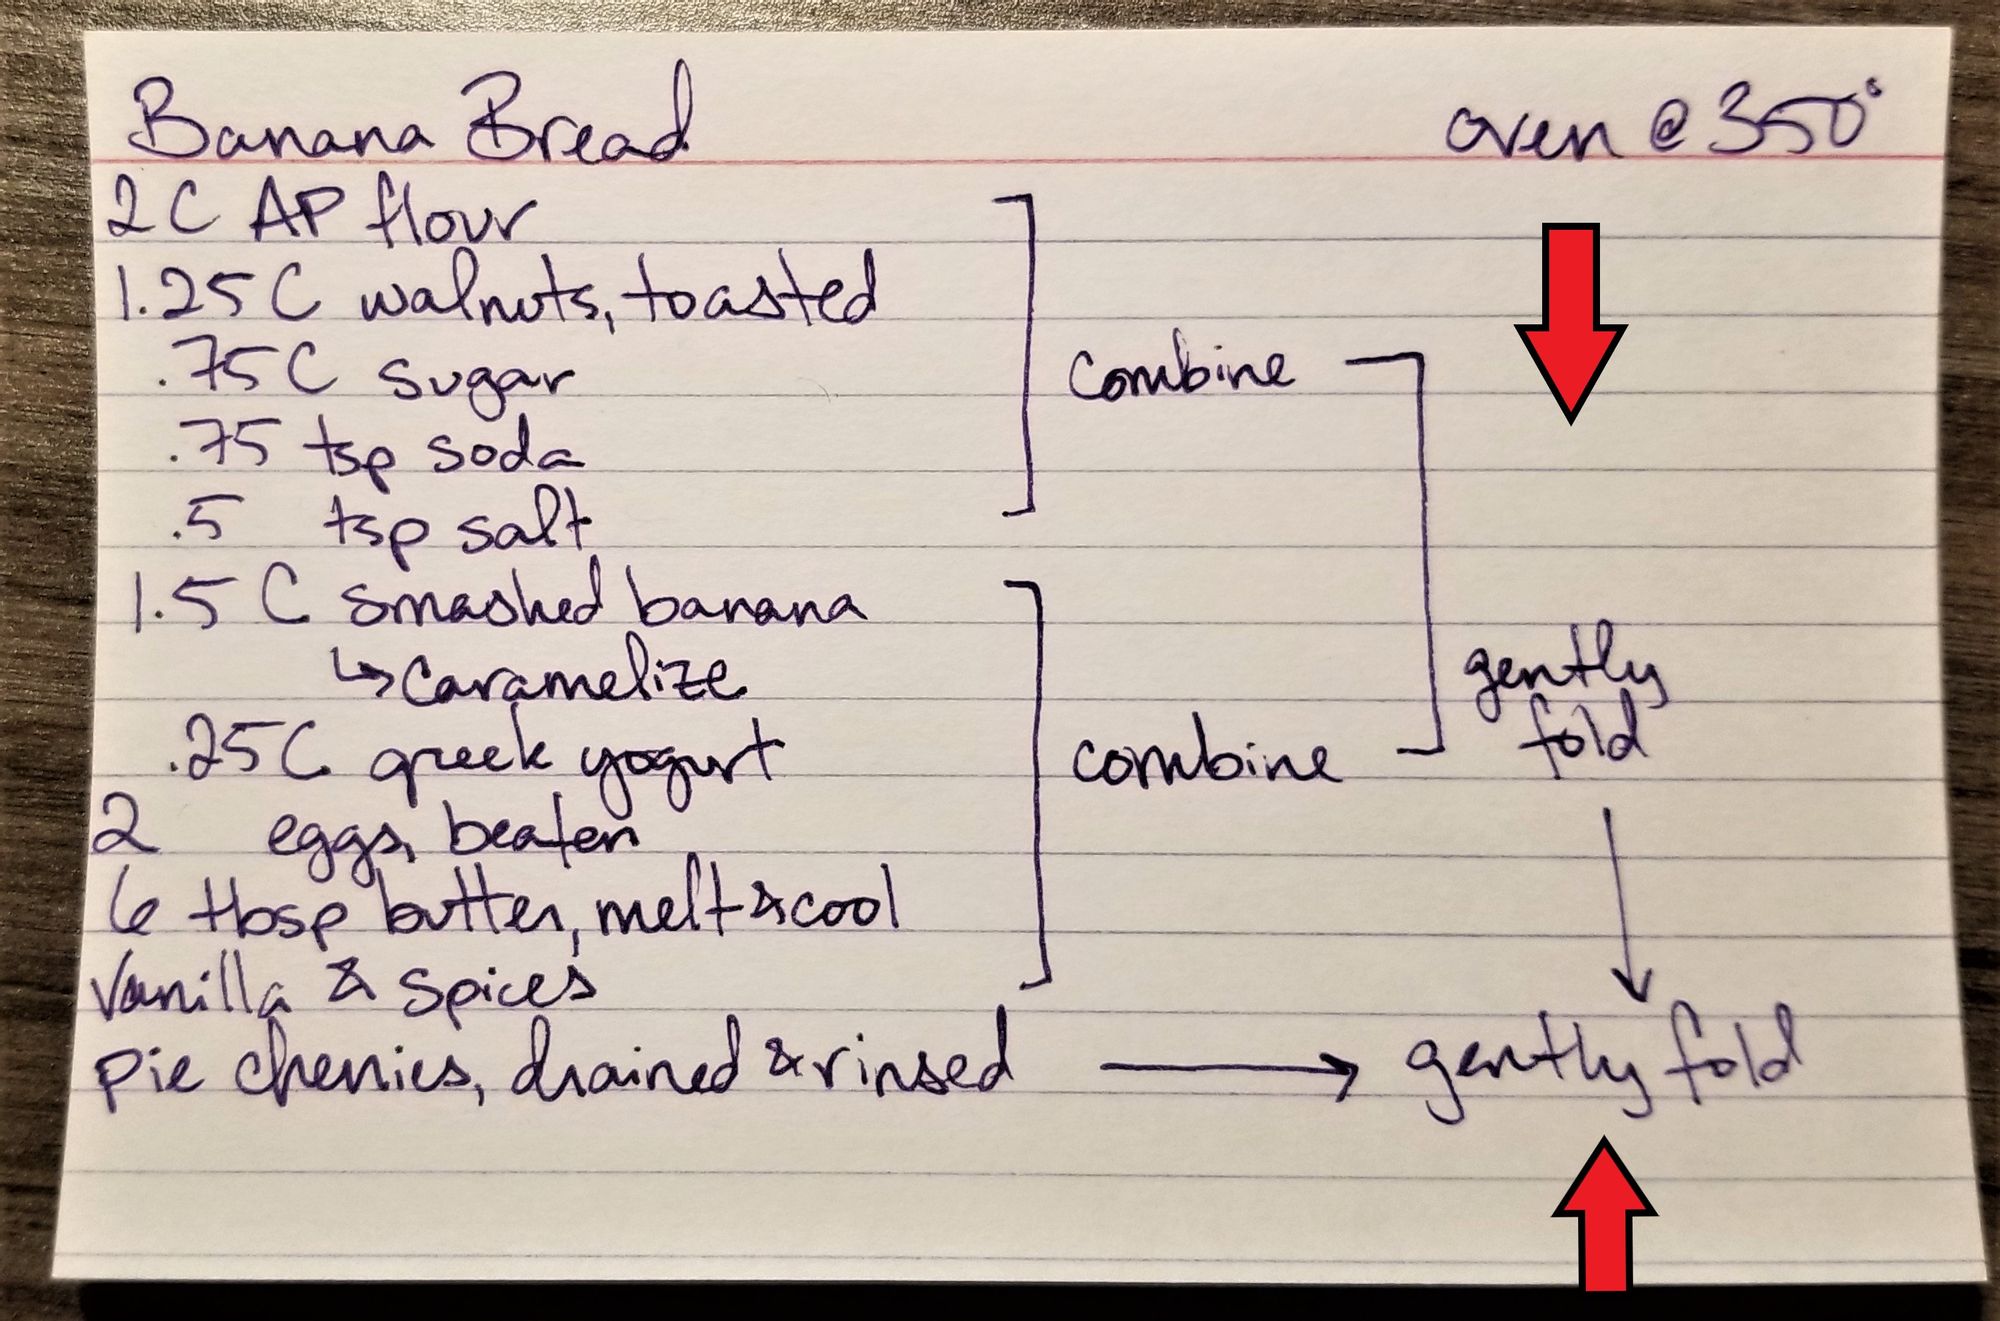 Banana Bread oven @ 350°
2 C AP flour
1.25 C walnuts, toasted
.75 C sugar
combine
.75 tsp soda
.5 tsp salt
1.5 C smashed banana
↳ caramelize
gently
fold
.25 C greek yogurt
combine
2 eggs, beaten
6 tbsp butter, melt & cool
Vanilla & spices
pie cherries, drained & rinsed → gently fold